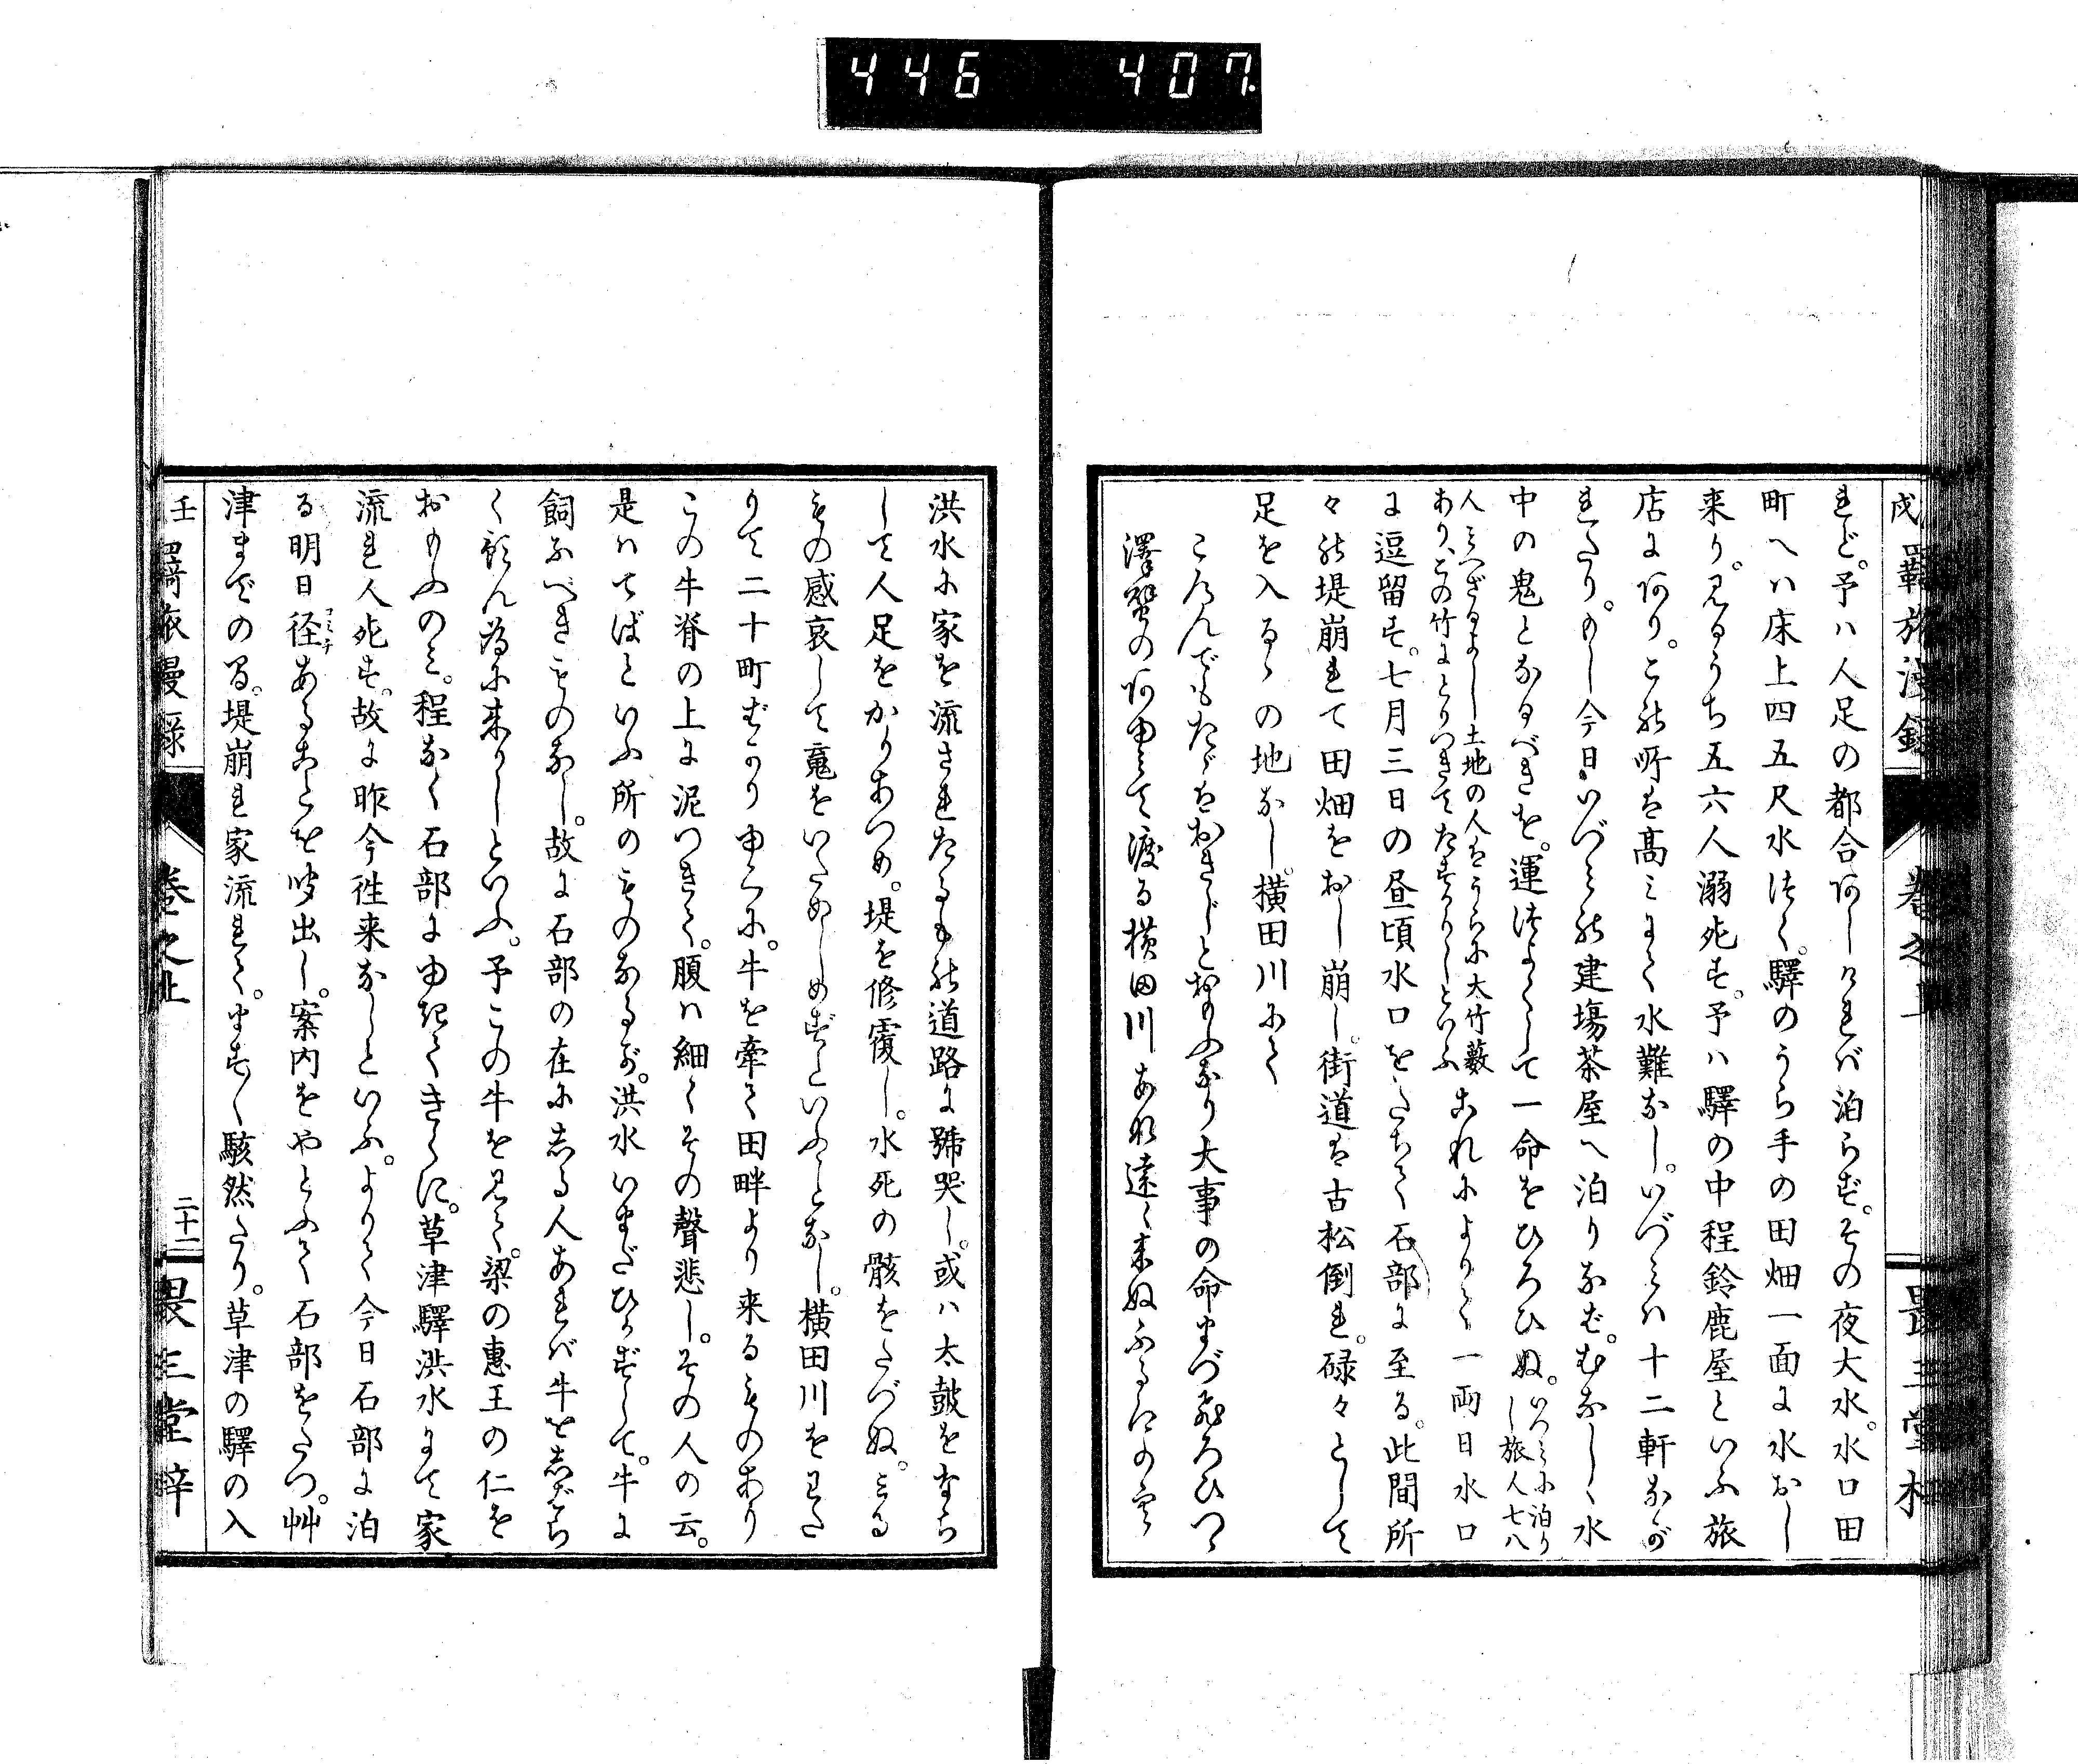 446 407.
戌 羇旅漫録 巻之上 畏三堂梓
れど。予ハ人足の都合あしければ泊らず。その夜大水。水口田
町へハ床上四五尺水つく。驛のうら手の田畑一面に水おし
来り。見るうち五六人溺死す。予ハ驛の中程鈴鹿屋といふ旅
店にあり。この所は高みにて水難なし。いづみハ十二軒なが
れたり。もし今日いづみの建場茶屋へ泊りなば。むなしく水
中の鬼となるべきを。運つよくして一命をひろひぬ。いづみに泊りし旅人七八
人みへざるよし土地の人はうらに大竹藪あり、この竹にとりつきてたすかりしといふ これによりて一両日水口
に逗留す。七月三日の昼頃水口をたちて石部に至る。此間所
々の堤崩れて田畑をおし崩し。街道は古松倒れ。碌々として
足を入るゝの地なし。横田川にて
ころんでもたゞはおきじとおもふなり大事の命まづひろひつゝ
澤蟹のあゆみて渡る横田川あれ
洪水に家を流されたるもの道路に號哭し。或ハ太鼓をならち
して人足をかりあつめ。堤を修覆し。水死の骸をたづぬ。みる
もの感哀して鬼をいためしめずといふことなし。横田川をわた
りて二十町ばかりゆくに。牛を牽て田畔より来るものあり
この牛脊の上に泥つきて。腹ハ細くその聲悲し。その人の云。
是ハてばといふ所のものなるが。洪水いまだひかずして。牛に
飼ふべきものなし。故に石部の在にしる人あれば牛をしばらく
頼ん為に来りしといふ。予この牛を見て。梁の惠王の仁を
おもふのみ。程なく石部にゆきてきくに。草津驛洪水にて家
流れ人死す。故に昨今徃来なしといふ。よりて今日石部に泊
る明日径あることを聞出し。案内をやとふて石部をたつ。艸
津までの間。堤崩れ家流れて。ます〱駭然たり。草津の驛の入
壬 羇旅漫録 巻之上 二十二 畏三堂梓